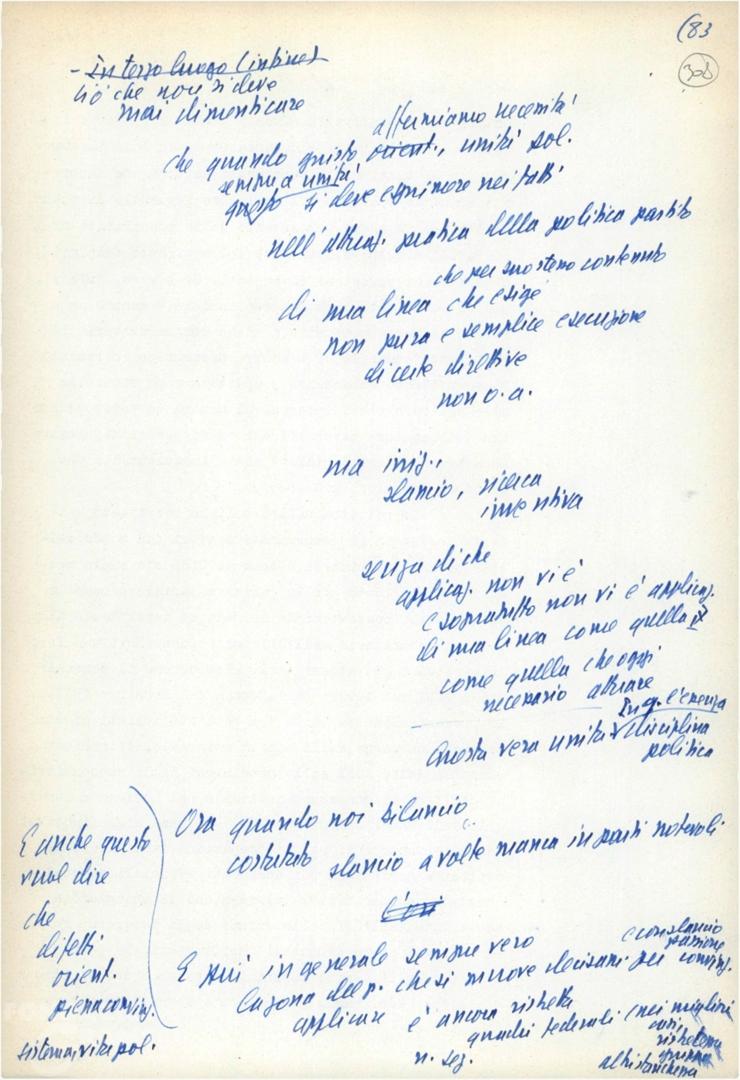 (83
308
- In terzo luogo (infine)
Ciò che non si deve
mai dimenticare
affermiamo necessità
che quando giusto orient., unità sol.
sempre unità
questo si deve esprimere nei fatti
nell'attuaz. pratica della politica partito
che per suo stesso contenuto
di una linea che esige
non pura e semplice esecuzione
di certe direttive
non o.a.
ma iniz.,
slancio, ricerca
inventiva
senza di che
applicaz. non vi è
e soprattutto non vi è applicaz.
di una linea come quella
come quella che oggi
necessario attuare
In q. è essenza
Questa vera unità disciplina
politica
Ora quando noi bilancio
costatato slancio a volte manca in parti notevoli
E più in generale sempre vero
e con slancio
passione
La zona del p. che si muove decisam. per convinz.
applicare è ancora ristretta
quadri federali (nei migliori
casi,
n. sez.
E anche questo
vuol dire
che
difetti
orient.
piena convinz.
sistema, vita pol.